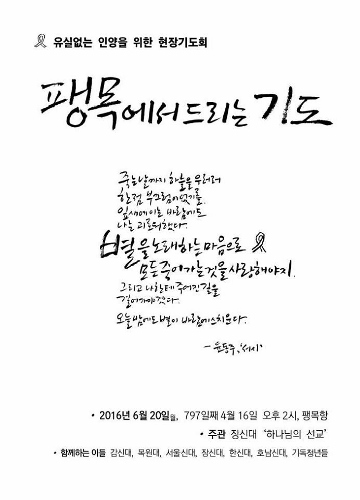 유실없는 인양을 위한 현장기도회
팽목에서드리는 기도
죽는날까지 하늘을 우러러
한점 부끄럼이 없기를
잎새에 이는 바람에도
나는 괴로워했다.
별을노래하는마음으로
모든죽어가는것을사랑해야지.
그리고 나한테주어진길을
걸어가야겠다.
오늘밤에도별이 바람에스치운다.
- 윤동주, '서시'
• 2016년 6월 20일월, 797일째 4월 16일 오후 2시, 팽목항
• 주관 장신대 '하나님의 선교'
• 함께하는 이들 감신대, 목원대, 서울신대, 장신대, 한신대, 호남신대, 기독청년들